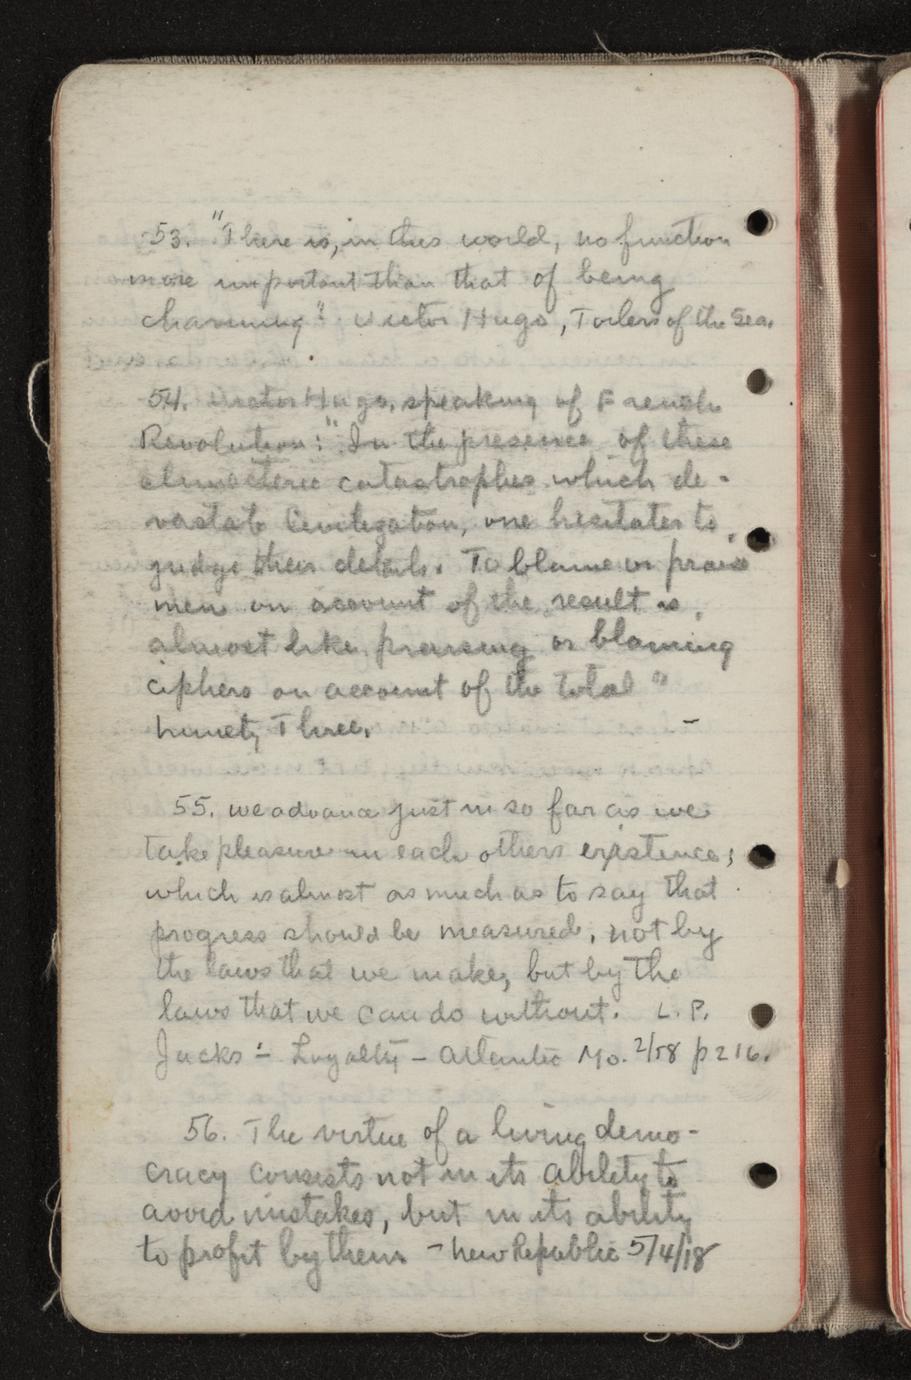 53. "There is, in this world, no function
more important than that of being
charming". Victor Hugo, Toilers of the Sea.
54. Victor Hugo, speaking of French
Revolution: "In the presence of these
climacteric catastrophes which de-
vastate Civilization, one hesitates to
judge their details. To blame or praise
men on account of the result is
almost like praising or blaming
ciphers on account of the total"
Ninety Three. -
55. We advance just in so far as we
take pleasure in each others existence;
which is almost as much as to say that
progress should be measured, not by
the laws that we make, but by the
laws that we can do without. L. P.
Jacks - Loyalty - Atlantic Mo. 2/18 p 216.
56. The virtue of a living demo-
cracy consists not in its ability to
avoid mistakes, but in its ability
to profit by them - New Republic 5/4/18